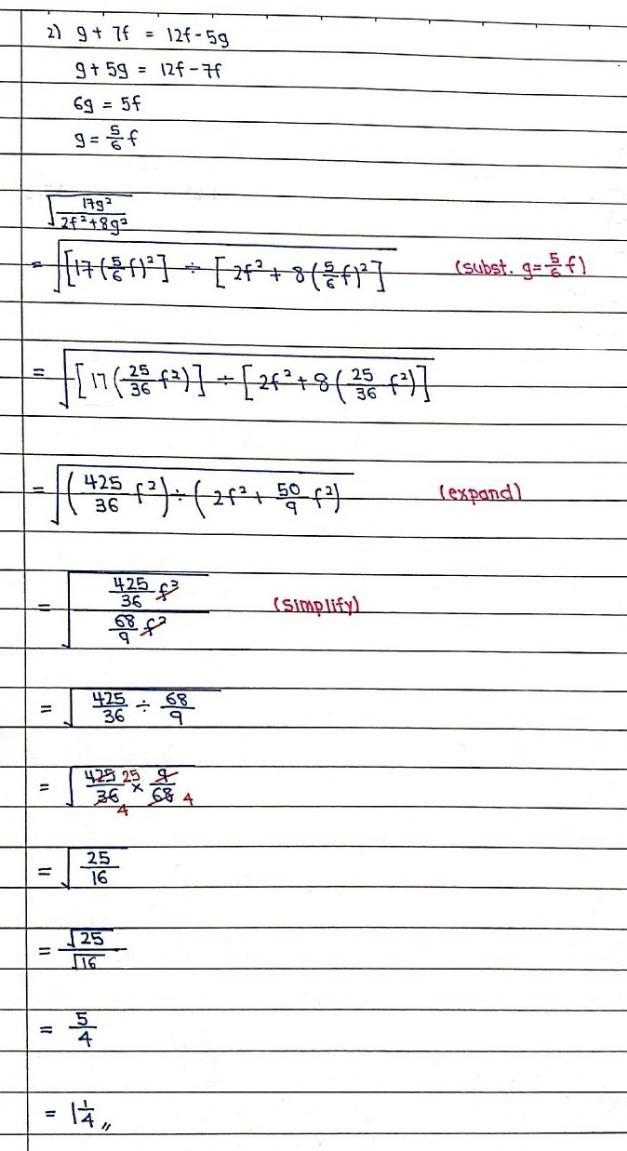 2) g + 7f = 12f - 5g
g + 5g = 12f - 7f
6g = 5f
g = 5/6 f
√(17g²/(2f² + 8g²))
= √([17(5/6 f)²] ÷ [2f² + 8(5/6 f)²]) (subst. g = 5/6 f)
= √([17(25/36 f²)] ÷ [2f² + 8(25/36 f²)])
= √((425/36 f²) ÷ (2f² + 50/9 f²)) (expand)
= √((425/36 f²)/(68/9 f²)) (simplify)
= √(425/36 ÷ 68/9)
= √(425/36 × 9/68) 25 4 4
= √(25/16)
= √25/√16
= 5/4
= 1 1/4 ,,